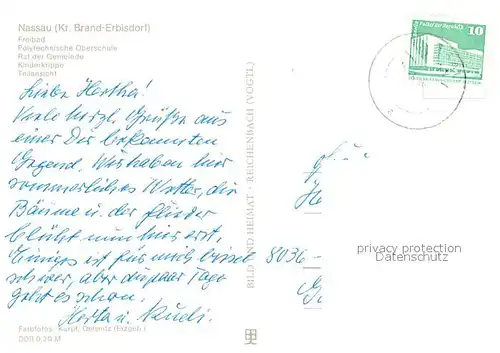 Nassau (Kr. Brand-Erbisdorf)
Freibad
Polytechnische Oberschule
Rat der Gemeinde
Kinderkrippe
Teilansicht
Liebe Hertha!
Viele herzl. Grüße aus
einer Dir bekannten
Gegend. Wir haben hier
sommerliches Wetter, die
Bäume u. der Flieder
blüht nun hier erst.
Einiges ist für mich bissel
schwer, aber die paar Tage
geht es schon.
Herta u. Rudi.
Farbfotos: Kurpf, Oelsnitz (Erzgeb.)
DDR 0,20 M
BILD UND HEIMAT · REICHENBACH (VOGTL)
Palast der Republik
10
8036
privacy protection
Datenschutz